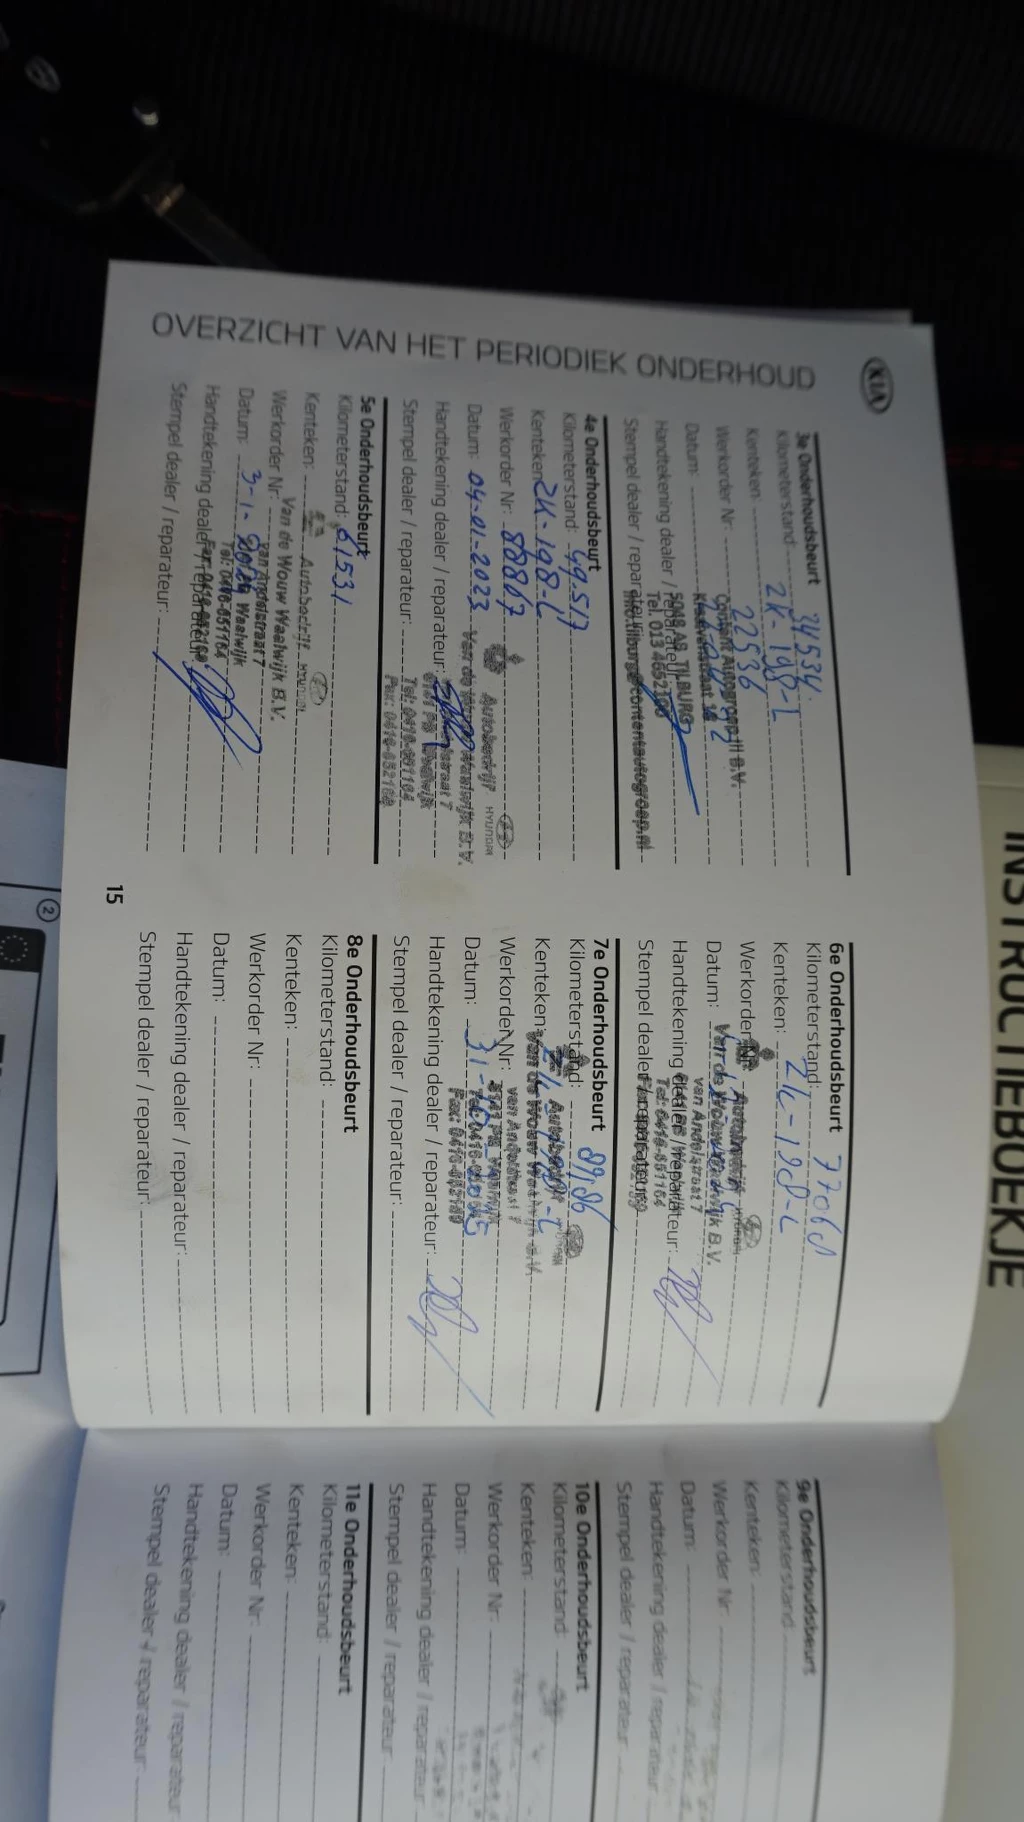 KIA
OVERZICHT VAN HET PERIODIEK ONDERHOUD
3e Onderhoudsbeurt
Kilometerstand: 34534
Kenteken: 2K-198-L
Werkorder Nr: 22536
Content Autogroep
Datum:
Handtekening dealer / reparateur:
TILBURG
Tel. 013 4652100
Stempel dealer / reparateur:
4e Onderhoudsbeurt
Kilometerstand: 49.517
Kenteken: 2K-198-L
Werkorder Nr: 80867
Autobedrijf HYUNDAI
Datum: 04-01-2023
Van de Wouw Waalwijk B.V.
Handtekening dealer / reparateur:
Stempel dealer / reparateur:
Tel: 0416-651164
Fax: 0416-652180
5e Onderhoudsbeurt
Kilometerstand: 61531
Kenteken:
Autobedrijf HYUNDAI
Werkorder Nr:
Van de Wouw Waalwijk B.V.
van Andelstraat 7
Datum: 3-1-
Waalwijk
Tel: 0416-651164
Handtekening dealer / reparateur:
Stempel dealer / reparateur:
15
6e Onderhoudsbeurt
Kilometerstand:
Kenteken: 2K-198-L
Werkorder Nr:
Autobedrijf HYUNDAI
Datum:
Van de Wouw Waalwijk B.V.
van Andelstraat 7
Handtekening dealer / reparateur:
Tel: 0416-651164
Stempel dealer / reparateur:
7e Onderhoudsbeurt
Kilometerstand:
Kenteken:
Autobedrijf
Van de Wouw Waalwijk B.V.
Werkorder Nr:
van Andelstraat 7
Datum: 31-
Handtekening dealer / reparateur:
Stempel dealer / reparateur:
8e Onderhoudsbeurt
Kilometerstand:
Kenteken:
Werkorder Nr:
Datum:
Handtekening dealer / reparateur:
Stempel dealer / reparateur:
9e Onderhoudsbeurt
Kilometerstand:
Kenteken:
Werkorder Nr:
Datum:
Handtekening dealer / reparateur
Stempel dealer / reparateur
10e Onderhoudsbeurt
Kilometerstand:
Kenteken:
Werkorder Nr:
Datum:
Handtekening dealer / reparateur
Stempel dealer / reparateur
11e Onderhoudsbeurt
Kilometerstand:
Kenteken:
Werkorder Nr:
Datum:
Handtekening dealer / reparateur
Stempel dealer / reparateur:
INSTRUCTIEBOEKJE
2